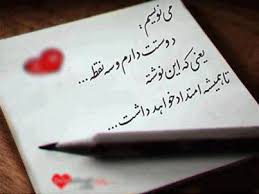 می نویسم :
دوستت دارم و سه نقطه...
یعنی که این نوشته
تا همیشه امتداد خواهد داشت...